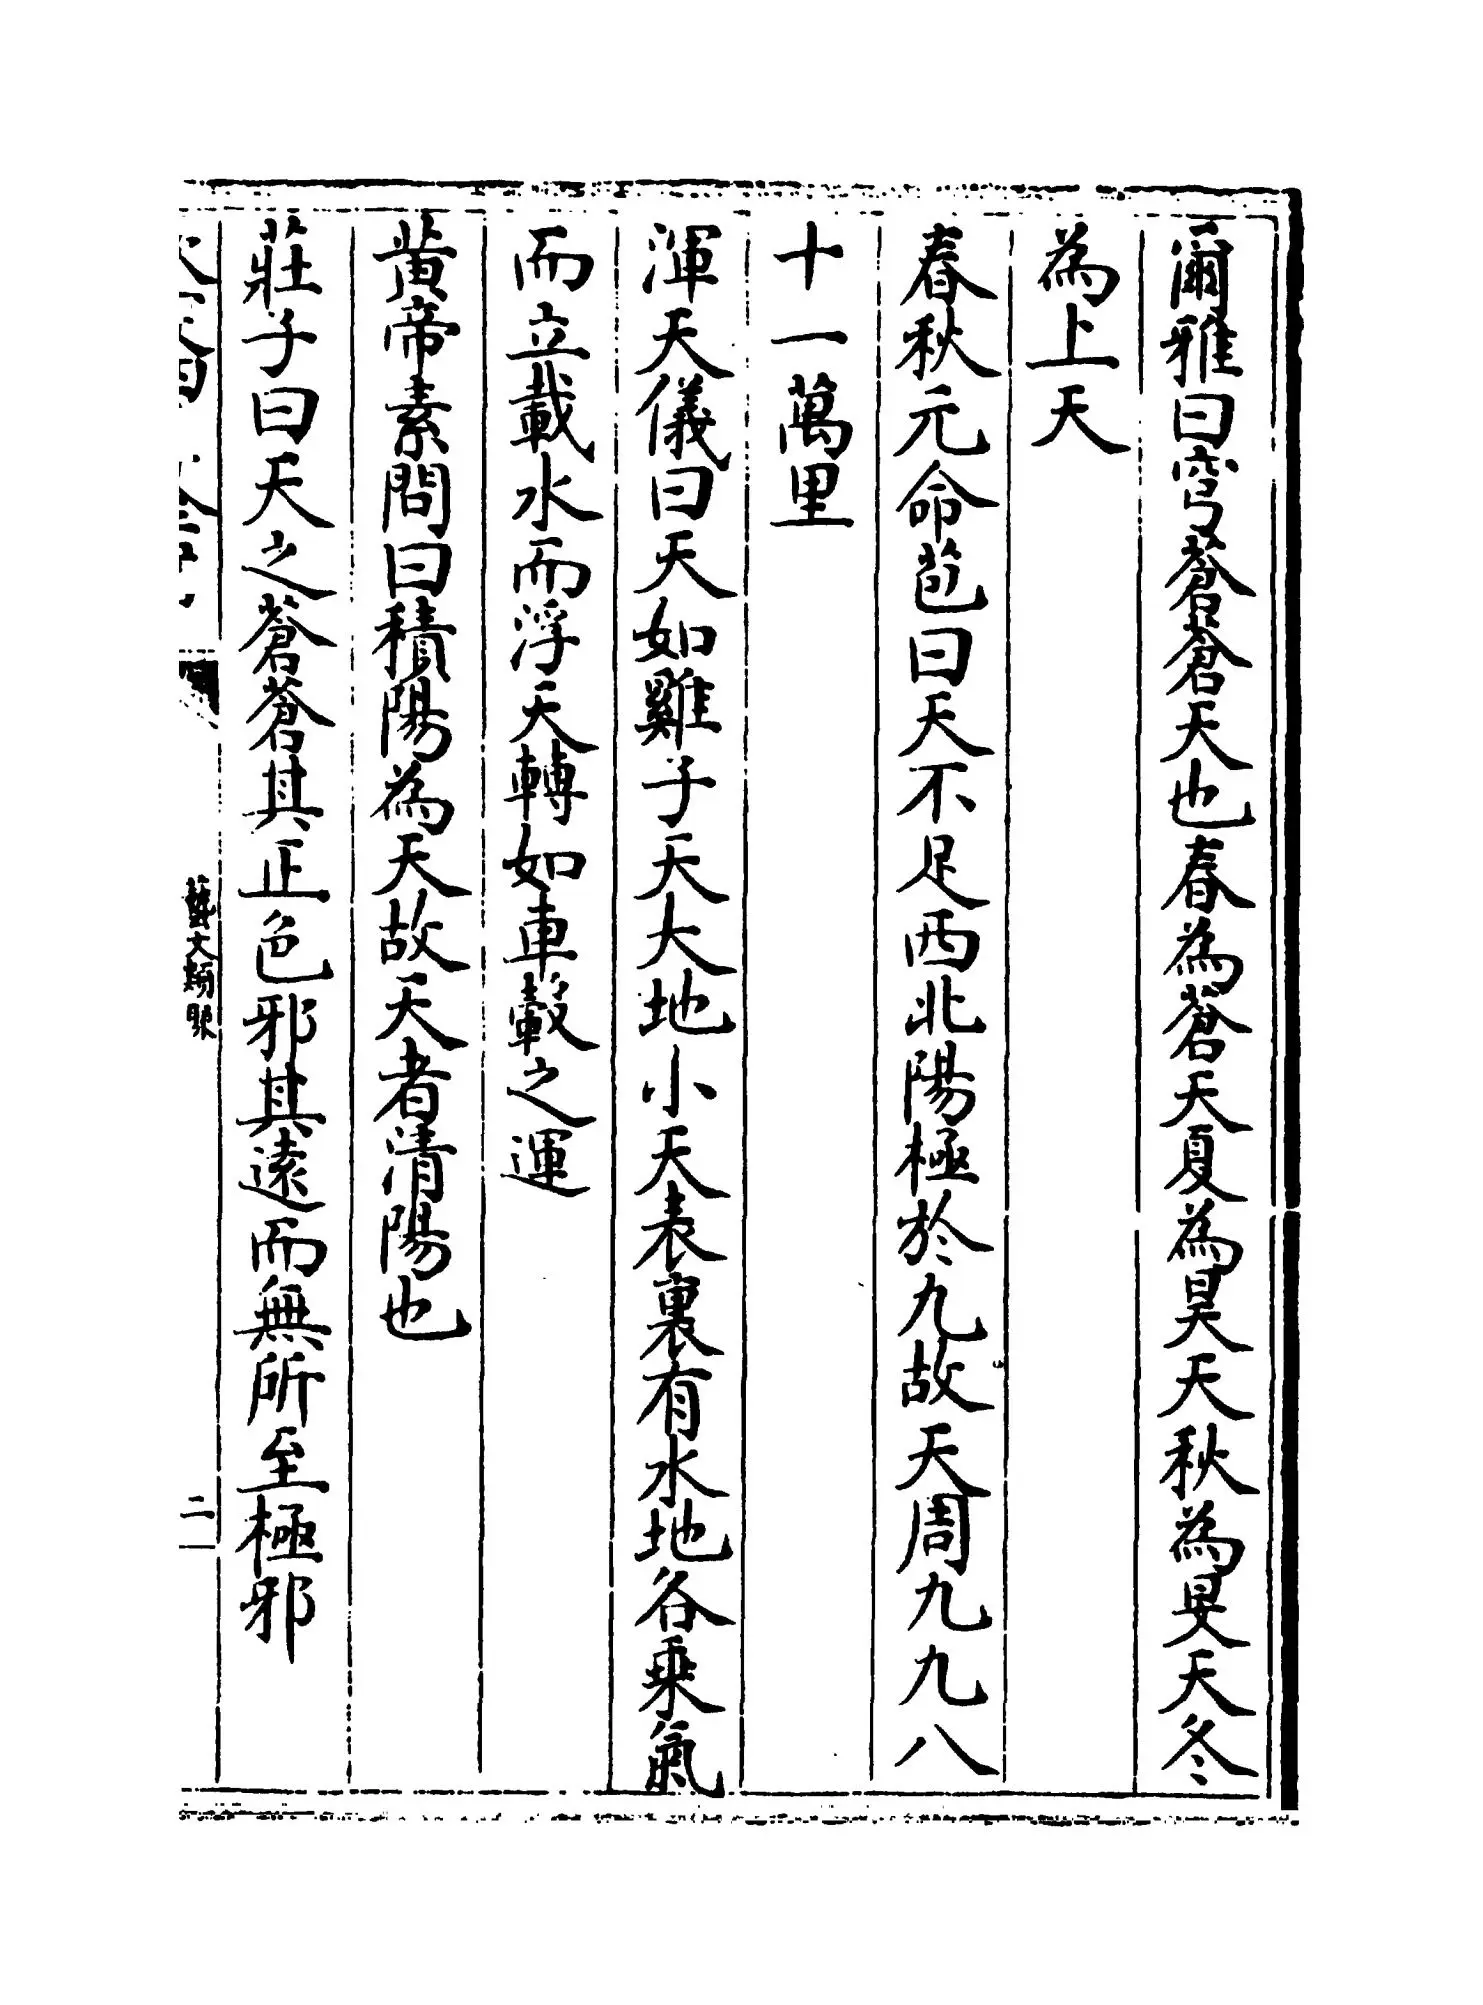 爾雅曰穹蒼蒼天也春為蒼天夏為昊天秋為旻天冬
為上天
春秋元命苞曰天不足西北陽極於九故天周九九八
十一萬里
渾天儀曰天如雞子天大地小天表裏有水地各乗氣
而立載水而浮天轉如車轂之運
黄帝素問曰積陽為天故天者清陽也
莊子曰天之蒼蒼其正色邪其逺而無所至極邪
藝文類聚
二